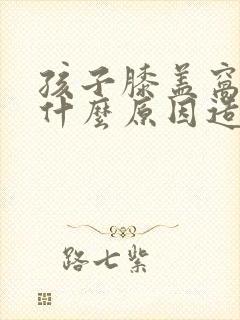 孩子膝盖窝
什麼原因造
路七紫